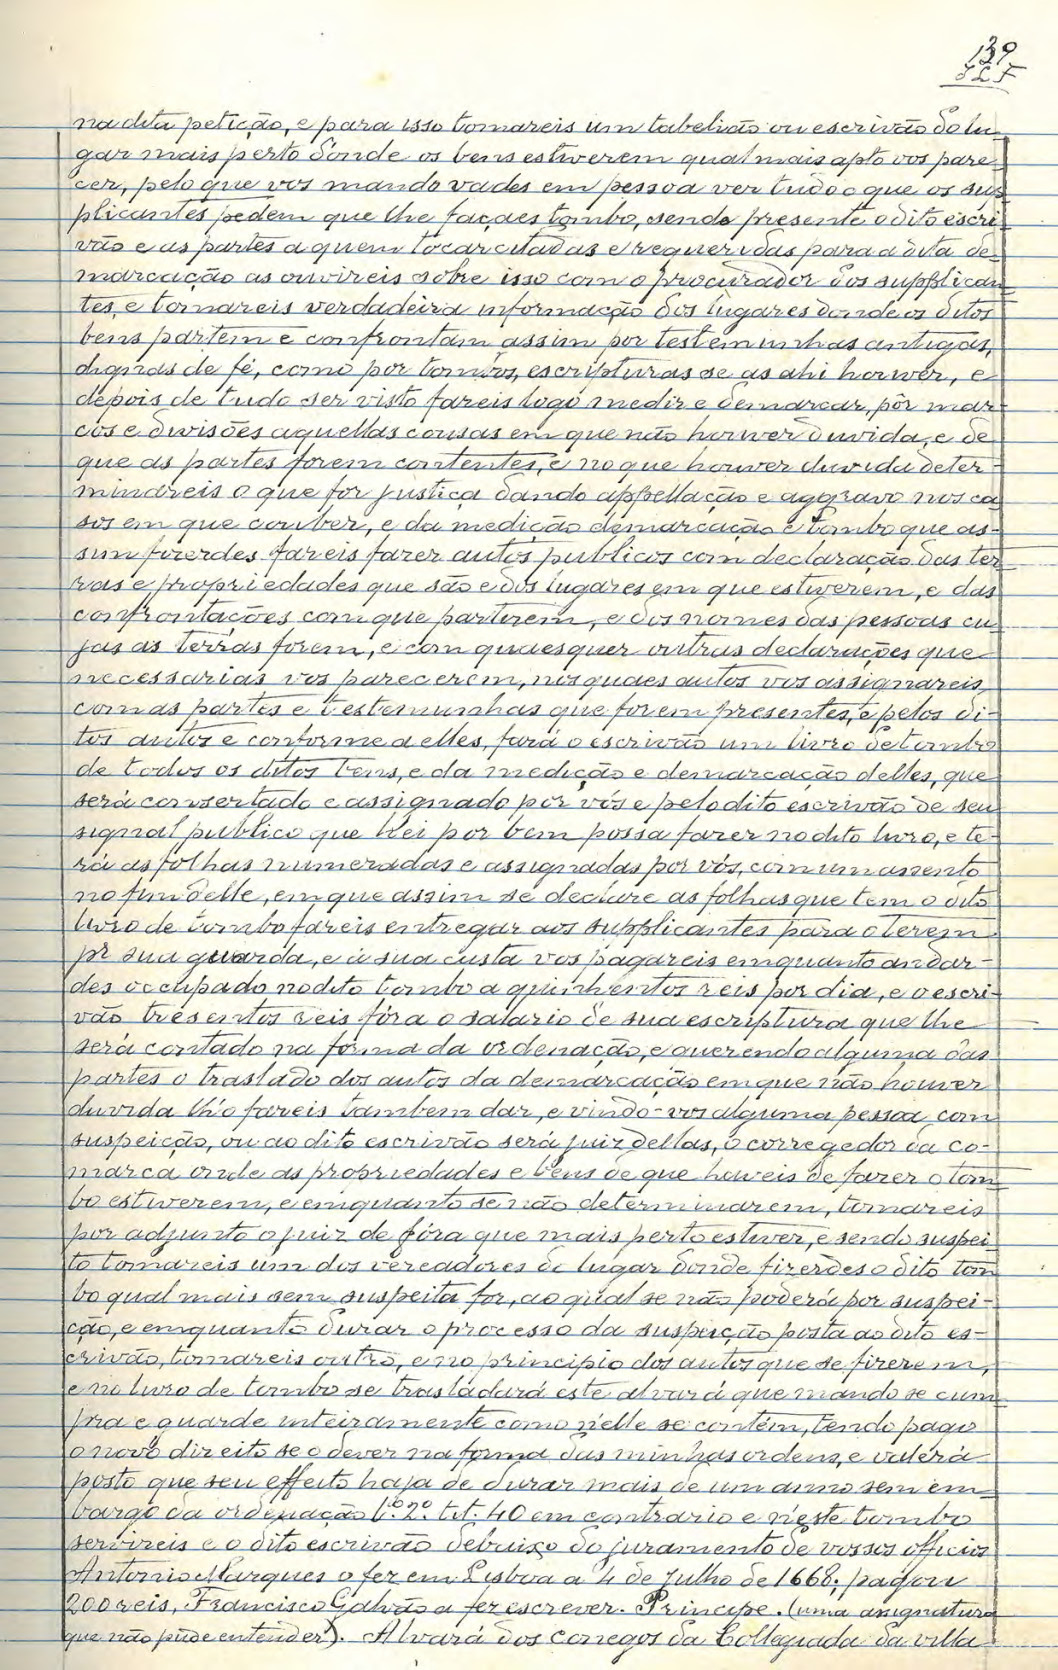 139
na dita petição, e para isso tomareis um tabelião ou escrivão do lu-
gar mais perto donde os bens estiverem qual mais apto vos pare-
cer, pelo que vos mando vades em pessoa ver tudo o que os sup-
plicantes pedem que lhe façaes tombo, sendo presente o dito escri-
vão e as partes a quem tocar citadas e requeridas para a dita de-
marcação as ouvireis sobre isso com o procurador dos supplican-
tes, e tomareis verdadeira informação dos lugares donde os ditos
bens partem e confrontam assim por testemunhas antigas,
dignas de fé, como por tombos, escripturas se as ahi houver, e
depois de tudo ser visto fareis logo medir e demarcar, pôr mar-
cos e divisões aquellas cousas em que não houver duvida, e de
que as partes forem contentes, e no que houver duvida deter-
minareis o que for justiça dando appellação e aggravo nos ca-
sos em que couber, e da medição demarcação e tombo que as-
sim fizerdes fareis fazer autos publicos com declaração das ter-
ras e propriedades que são e dos lugares em que estiverem, e das
confrontações com que partirem, e dos nomes das pessoas cu-
jas as terras forem, e com quaesquer outras declarações que
necessarias vos parecerem, nos quaes autos vos assignareis,
com as partes e testemunhas que forem presentes, e pelos di-
tos autos e conforme a elles, fará o escrivão um livro de tombo
de todos os ditos bens, e da medição e demarcação delles, que
será consertado e assignado por vós e pelo dito escrivão de seu
signal publico que hei por bem possa fazer no dito livro, e te-
rá as folhas numeradas e assignadas por vós, com um assento
no fim delle, em que assim se declare as folhas que tem o dito
livro de tombo fareis entregar aos supplicantes para o terem
pr sua guarda, e á sua custa vos pagareis emquanto andar-
des occupado no dito tombo a quinhentos reis por dia, e o escri-
vão tresentos reis fóra o salario de sua escriptura que lhe
será contado na fórma da ordenação, e querendo alguma das
partes o traslado dos autos da demarcação em que não houver
duvida lh'o fareis tambem dar, e vindo-vos alguma pessoa com
suspeição, ou ao dito escrivão será juiz dellas, o corregedor da co-
marca onde as propriedades e bens de que haveis de fazer o tom-
bo estiverem, e emquanto se não determinarem, tomareis
por adjunto o juiz de fóra que mais perto estiver, e sendo suspei-
to tomareis um dos vereadores do lugar donde fizerdes o dito tom-
bo qual mais sem suspeita for, ao qual se não poderá por suspei-
ção, e emquanto durar o processo da suspeição posta ao dito es-
crivão, tomareis outro, e no principio dos autos que se fizerem,
e no livro de tombo se trasladará este alvará que mando se cum-
pra e guarde inteiramente como n'elle se contém, tendo pago
o novo direito se o dever na forma das minhas ordens, e valerá
posto que seu effeito haja de durar mais de um anno sem em-
bargo da ordenação l.º 2.º tit. 40 em contrario e n'este tombo
servireis e o dito escrivão debaixo do juramento de vossos officios
Antonio Marques o fez em Lisboa a 4 de Julho de 1668; pagou
200 reis, Francisco Galvão a fez escrever. Principe. (uma assignatura
que não pude entender). Alvará dos conegos da Collegiada da villa